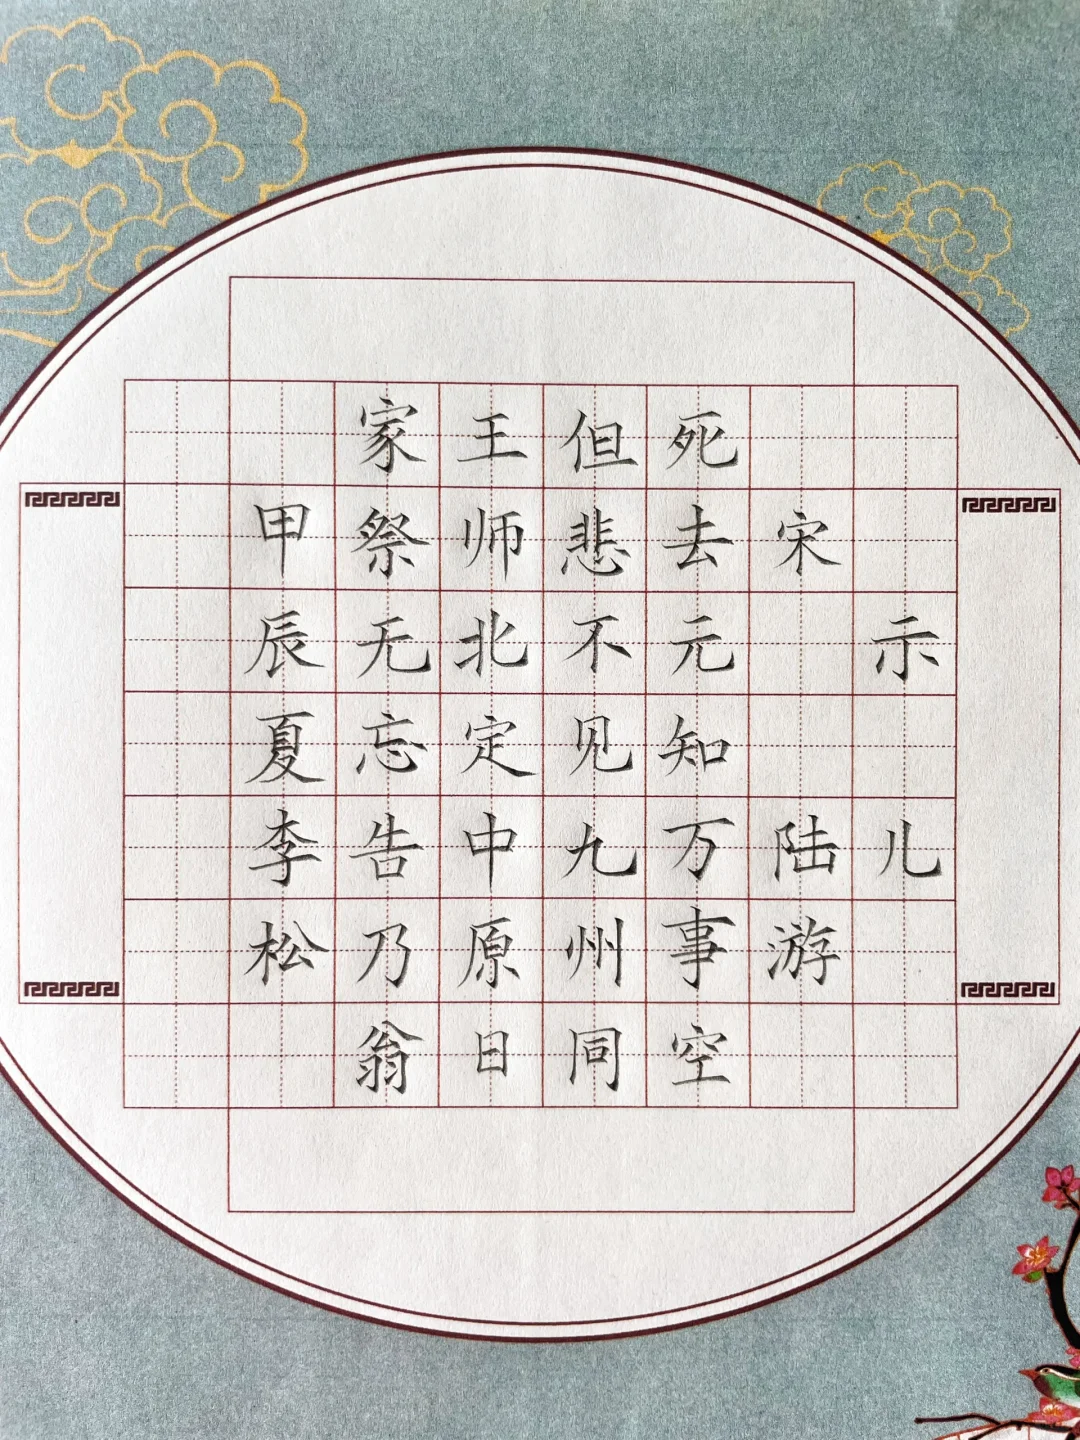 示儿
宋 陆游
死去元知万事空
但悲不见九州同
王师北定中原日
家祭无忘告乃翁
甲辰夏李松